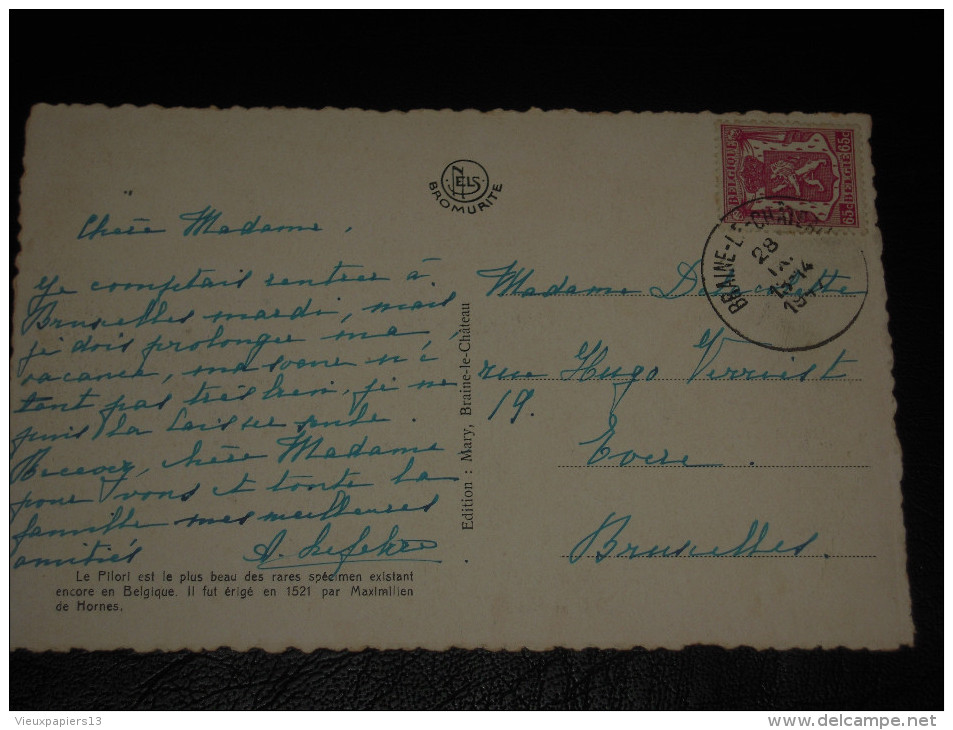 NELS
BROMURITE
BELGIQUE 65c
65c BELGIE
BRAINE-LE-CHÂTEAU
28
13-14
Chère Madame,
Je comptais rentrer à
Bruxelles mardi, mais
je dois prolonger ma
vacance, ma soeur n'é
tant pas très bien, je ne
puis la laisser seule.
Recevez, chère Madame
pour vous et toute la
famille mes meilleures
amitiés A. Lefebvre
Le Pilori est le plus beau des rares spécimen existant
encore en Belgique. Il fut érigé en 1521 par Maximilien
de Hornes.
Edition : Mary, Braine-le-Château
Madame
rue Hugo Verriest
19.
Evere.
Bruxelles.
Vieuxpapiers13
www.delcampe.net